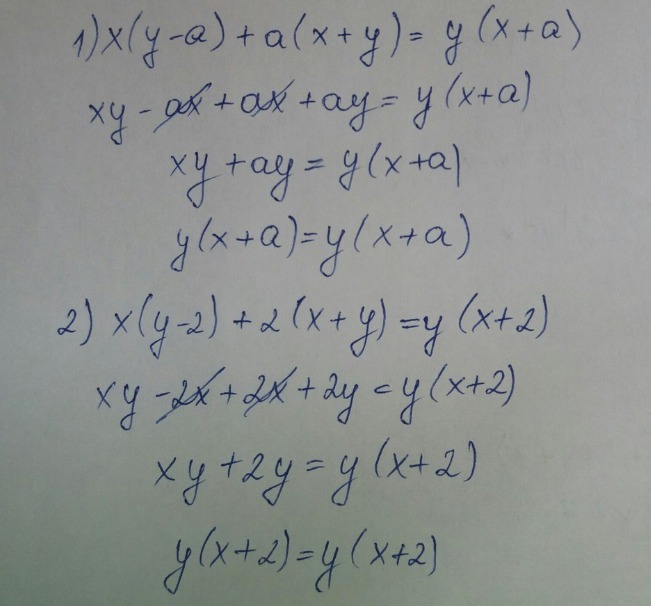 1) x(y-a) + a(x+y) = y(x+a)
xy - ax + ax + ay = y(x+a)
xy + ay = y(x+a)
y(x+a) = y(x+a)
2) x(y-2) + 2(x+y) = y(x+2)
xy - 2x + 2x + 2y = y(x+2)
xy + 2y = y(x+2)
y(x+2) = y(x+2)